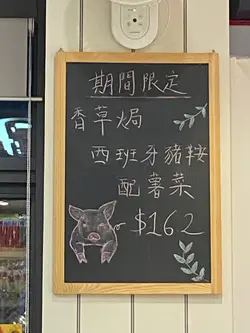 期間限定
香草焗
西班牙豬鞍
配薯菜
$162